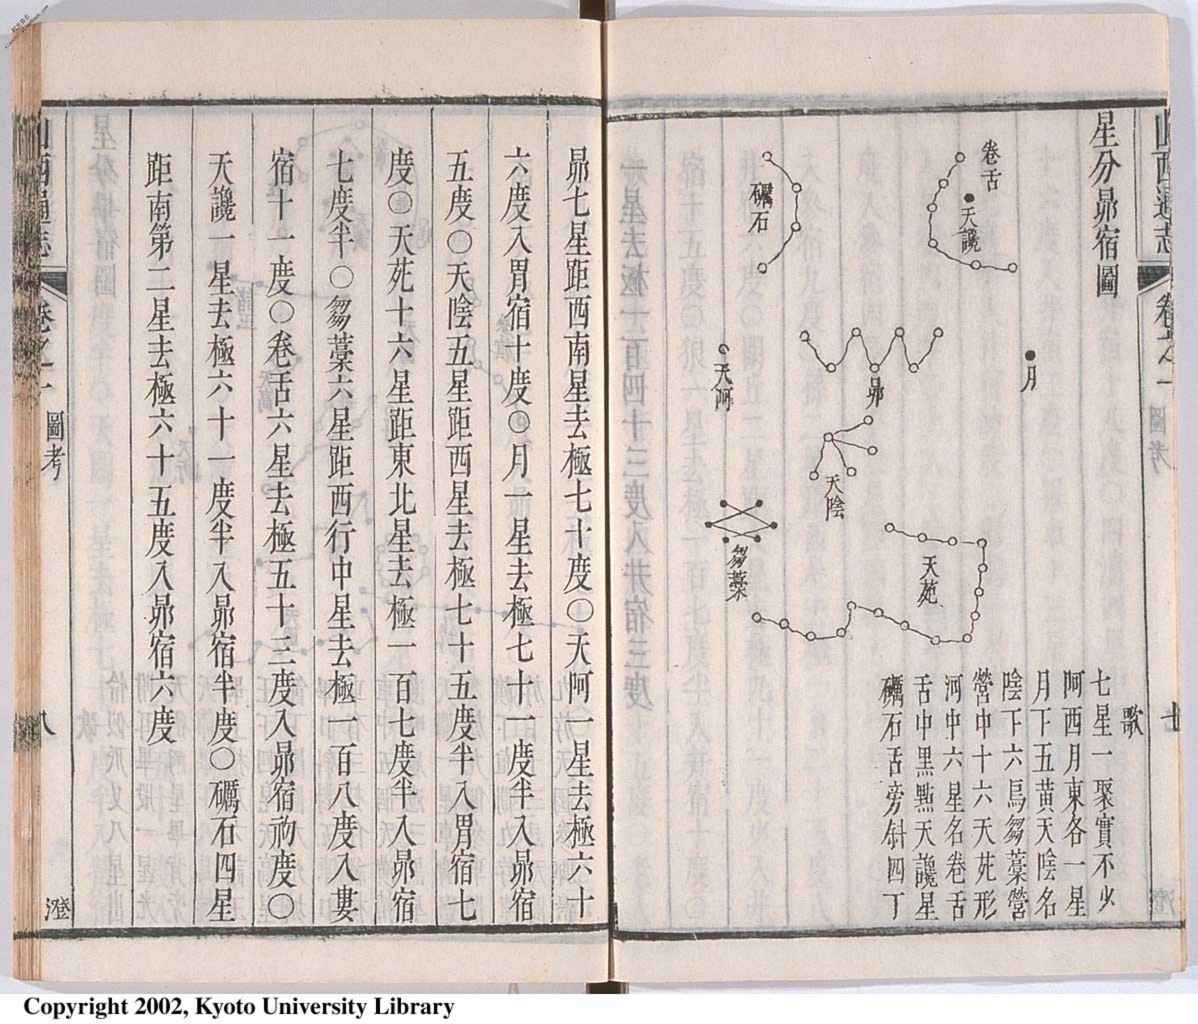 山西通志
卷之一
圖考
七
星分昴宿圖
卷舌
天讒
礪石
月
昴
天阿
天陰
芻藁
天苑
歌
七星一聚實不少
阿西月東各一星
月下五黃天陰名
陰下六烏芻藁營
營中十六天苑形
河中六星名卷舌
舌中黑點天讒星
礪石舌旁斜四丁
昴七星距西南星去極七十度〇天阿一星去極六十
六度入胃宿十度〇月一星去極七十一度半入昴宿
五度〇天陰五星距西星去極七十五度半入胃宿七
度〇天苑十六星距東北星去極一百七度半入昴宿
七度半〇芻藁六星距西行中星去極一百八度入婁
宿十一度〇卷舌六星去極五十三度入昴宿初度〇
天讒一星去極六十一度半入昴宿半度〇礪石四星
距南第二星去極六十五度入昴宿六度
山西通志
卷之一
圖考
八
澄
Copyright 2002, Kyoto University Library